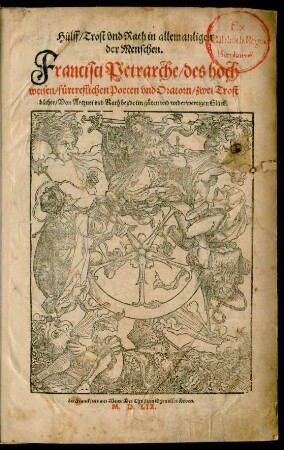 Hülff / Trost vnd Rath in allem anligen
der Menschen.
Francisci Petrarche / des hoch
weisen / fürtreflichen Poeten vnd Oratorn / zwei Trost
bücher / Von Artznei vnd Rath beyde in gůtem vnd widerwertigen Glück.
Ex
Bibliotheca Regia
zu Franckfurt am Meyn / Bei Christian Egenolffs Erben.
M. D. LIX.